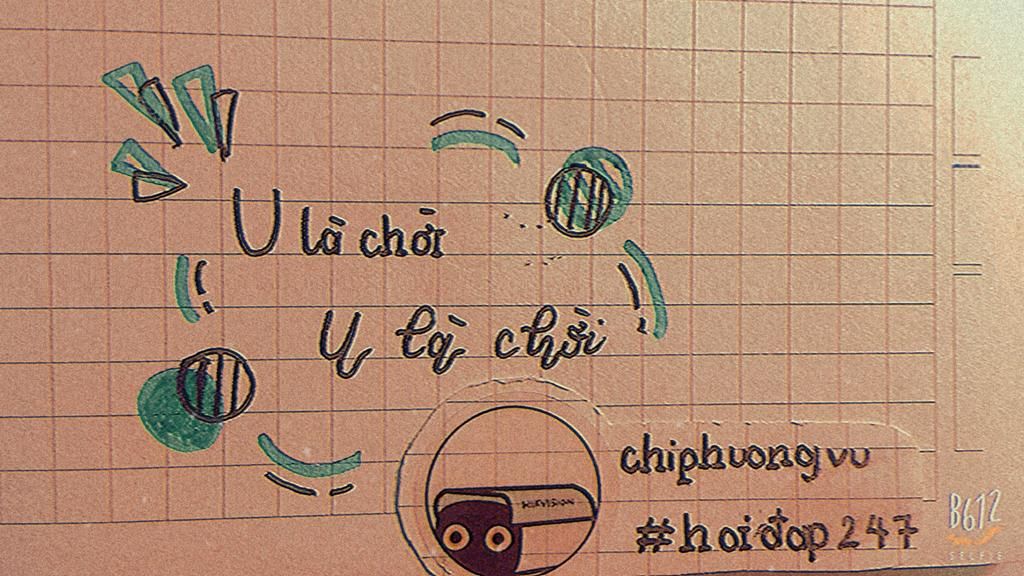 U là chời
U là chời
HIKVISION
chiphuongvu
#hoiđap247
B612
SELFIE